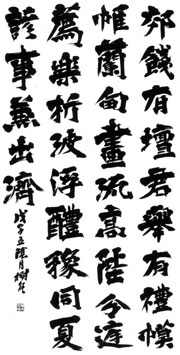 郊餞有壇君舉有禮幙
帷蘭甸畫流高陛分庭
薦樂析波浮醴豫同夏
諺事兼出濟
戊子五月